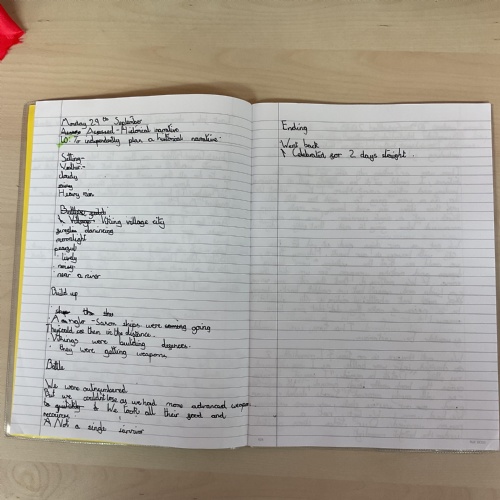 Monday 29th September
Assessed - Historical narrative
LO: To independently plan a historical narrative.
Setting-
Weather-
cloudy
Heavy rain
Viking village city
moonlight
peaceful
lively
noisy
near a river
Build up
Anglo-Saxon ships were going
They could see them in the distance.
Vikings were building defences.
they were getting weapons.
Battle
We were outnumbered
But we couldn't lose as we had more advanced weapons
to We took all their food and
resources
Not a single survivor
Ending
Went back
Celebrated for 2 days straight.